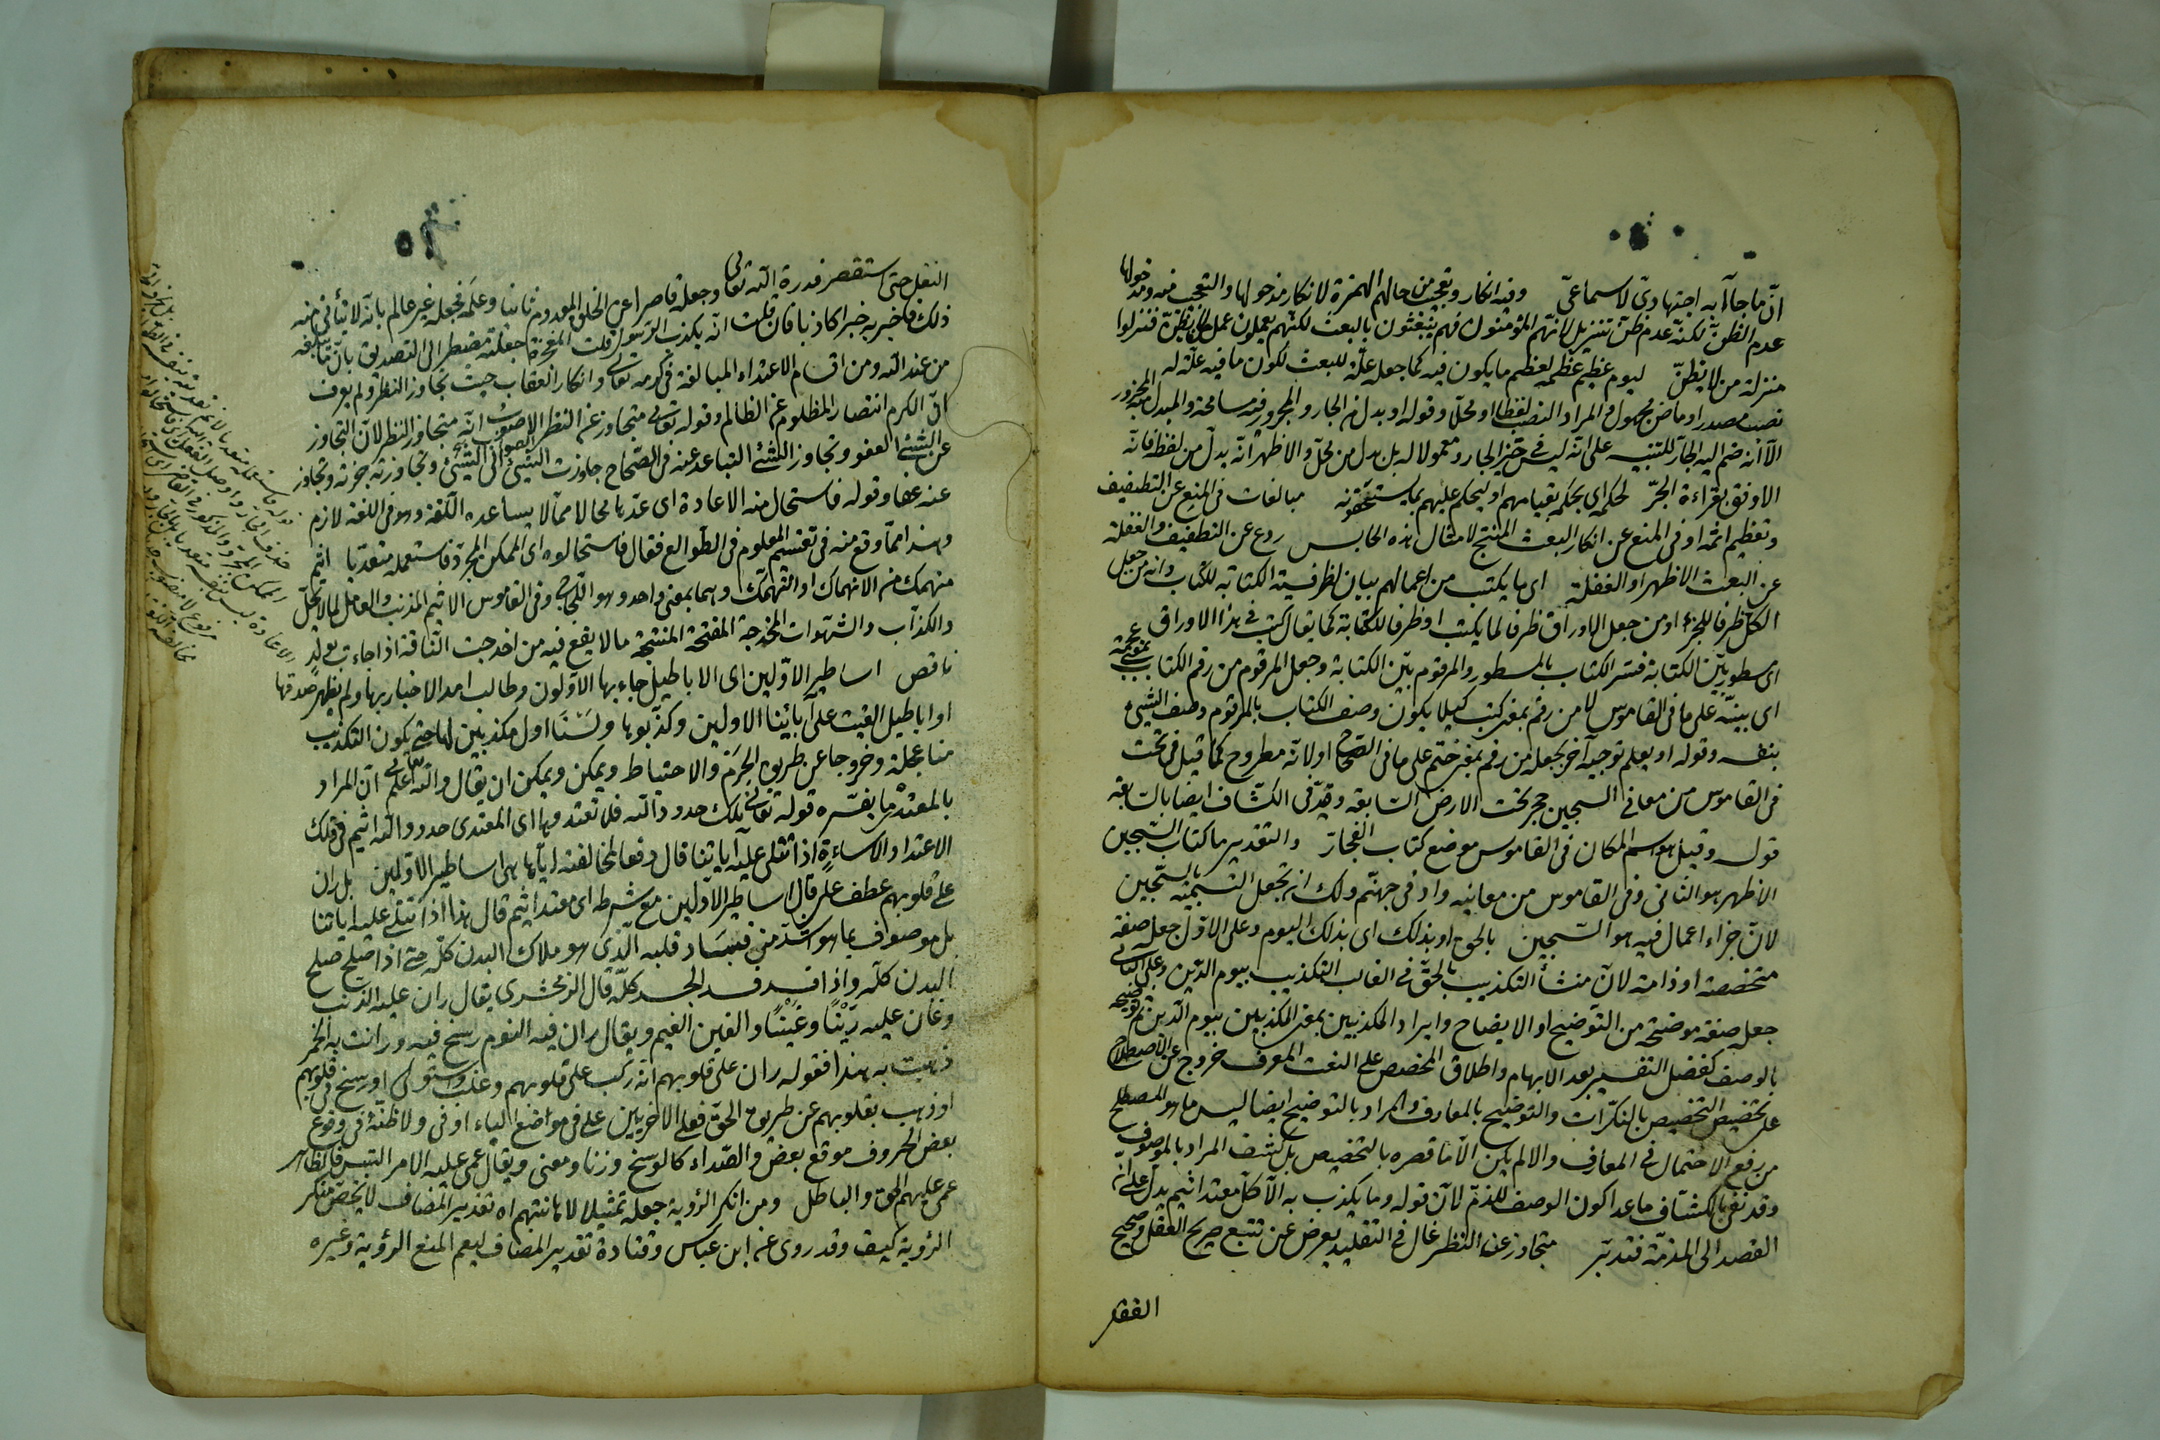 انّ ما جاآ به اجتهادىّ لا سماعىّ وفيه انكار وتعجيب من حالهم الهمزة لانكار مدخولها والتعجيب منه ومدخولها
عدم الظن لكنّه عدم ظنّ تنزيلى لانّهم المؤمنون فهم يتيقنون بالبعث لكنهم يعملون عمل من لا يظنّ فنزلوا
منزلة من لا يظنّ ليوم عظيم عظّمه لعظم ما يكون فيه كما جعله علّة للبعث لكون ما فيه علّة له
نصب بمصدر او ماض مجهول والمراد النصب لفظا او محلّا وقوله او بدل من الجار والمجرور فيه مسامحة والمبدل منه المجرور
الّا انه ضم اليه الجارّ للتنبيه على انّه ليس فى حيّز الجار ومعمولا له بل بدل من محلّ والاظهر انّه بدل من لفظه فانّه
الاوفق بقراءة الجرّ لحكمه اى بحكمه بقيامهم او ليحكم عليهم بما يستحقونه مبالغات فى المنع عن التطفيف
وتعظيم اثمه او فى المنع عن انكار البعث المنتج لامثال هذه الخسائس ردع عن التطفيف والغفلة
عن البعث الاظهر او الغفلة اى ما يكتب من اعمالهم بيان لظرفية الكتابة للكتاب وانه من جعل
الكلّ ظرفا للجزء او من جعل الاوراق ظرفا لما يكتب او ظرفا للكتابة كما يقال كتب فى هذا الاوراق
اى مسطور بيّن الكتابة فسّر الكتاب بالمسطور والمرقوم ببيّن الكتابة وجعل المرقوم من رقم الكتاب بمعنى اعجمه
اى بيّنه على ما فى القاموس لا من رقم بمعنى كتب كيلا يكون وصف الكتاب بالمرقوم وصف الشئ
بنفسه وقوله او يعلم توجيه آخر بجعله من رقم بمعنى ختم على ما فى الصحاح او لانّه مطروح كما قيل فى تحت
فى القاموس من معانى السجين حجر تحت الارض السّابعة وقيّد فى الكشّاف ايضا بالسّابعة
قوله وقيل هو اسم المكان فى القاموس موضع كتاب الفجّار والتقدير ما كتاب السّجين
الاظهر هو الثانى وفى القاموس من معانيه واد فى جهنّم ولك ان تجعل التسمية بالسّجين
لانّ جزاء اعمال فيه هو السّجين بالحق او بذلك اى بذلك اليوم وعلى الاوّل جعله صفة
مخصّصة او ذامة لانّ منشأ التكذيب بالحق فى الغالب التكذيب بيوم الدّين وعلى الثانى
جعل صفة موضحة من التّوضيح او الايضاح وايراد المكذبين بمعنى المكذبين بيوم الدّين ثم توضيحه
بالوصف كفضل التفسير بعد الابهام واطلاق المخصص على النعت المعرف خروج عن الاصطلاح
على تخصيص التخصيص بالنكرات والتّوضيح بالمعارف والمراد بالتوضيح ايضا ليس ما هو المصطلح
من رفع الاحتمال فى المعارف والّا لم يكن الّا ما قصره بالتخصيص بل كشف المراد بالموصوف
وقد نفى الكشّاف ما عدا كون الوصف للذمّ لانّ قوله وما يكذّب به الّا كلّ معتد اثيم يدلّ على انّه
القصد الى المذمّة فتدبّر متجاوز عن النظر غال فى التقليد يعرض عن تتبع صريح العقل وصحيح
النقل حتى استقصر قدرة اللّه تعالى وجعله قاصرا عن الخلق المعدوم ثانيا وعلمه فجعله غير عالم بانّه لا يتأتى منه
ذلك فاخبر به خبرا كاذبا فان قلت انّه يكذب الرّسول قلت المعجزة جعلته مضطر الى التصديق بانّ ما بلغه
من عند اللّه ومن اقسام الاعتداء المبالغة فى كرمه تعالى وانكار العقاب حيث تجاوز النظر ولم يعرف
انّ الكرم انتصار المظلوم عن الظالم وقوله تعالى متجاوز عن النظر الاصوب انّه متجاوز النظر لانّ التجاوز
عن الشئ العفو وتجاوز الشئ التباعد عنه فى الصّحاح جاوزت الشئ الى الشئ وتجاوزته جزته وتجاوز
عنه عفا وقوله فاستحال منه الاعادة اى عدّها محالا ممّا لا يساعده اللغة وهو فى اللغة لازم
وهذا ممّا وقع منه فى تقسيم المعلوم فى الطّوالع فقال فاستحالوه اى الممكن المجرّد فاستعمله متعدّيا اثيم
منهمك من الانهماك او التهمّك وهما بمعنى واحد وهو اللّجاج وفى القاموس الاثيم المذنب والعامل لما لا يحلّ
والكذّاب والشهوات المخدجة المفتحة المنتجة ما لا ينفع فيه من اخدجت النّاقة اذا جاءت بولد
ناقص اساطير الاوّلين اى الاباطيل جاء بها الاوّلون وطال امد الاخبار بها ولم يظهر صدقها
او اباطيل القيت على آبائنا الاولين وكذّبوها ولسنا اول مكذّبين لها حتى يكون التكذيب
منا عجلة وخروجا عن طريق الحزم والاحتياط ويمكن ويمكن ان يقال واللّه تعالى اعلم انّ المراد
بالمعتد ما يفسّره قوله تعالى تلك حدود اللّه فلا تعتدوها اى المعتدى حدود اللّه اثيم فى ذلك
الاعتداء والاساءة اذا تتلى عليه آياتنا قال دفعا لمخالفته ايّاها هى اساطير الاوّلين بل ران
على قلوبهم عطف على قال اساطير الاوّلين مع شرطه اى معتد اثيم قال هذا اذا تتلى عليه اياتنا
بل موصوف بما هو اشدّ منه فساد قلبه الّذى هو ملاك البدن كلّه حتى اذا صلح صلح
البدن كلّه واذا فسد فسد الجسد كلّه قال الزمخشرى يقال ران عليه الذنب
وغان عليه رينا وغينا والغين الغيم ويقال ران فيه النوم رسخ فيه ورانت به الخمر
ذهبت به هذا فقوله ران على قلوبهم انّه ركب على قلوبهم وغلب واستولى او رسخ فى قلوبهم
او ذهب بقلوبهم عن طريق الحقّ فعلى الاخريين على فى مواضع الباء او فى ولا ظنّة فى وقوع
بعض الحروف موقع بعض والصّداء كالوسخ وزنا ومعنى ويقال عمى عليه الامر التبس فالظاهر
عمى عليهم الحق والباطل ومن انكر الرؤية جعله تمثيلا لاهانتهم اه تقدير المضاف لا يخص منكر
الرؤية كيف وقد روى عن ابن عباس وقتادة تقدير المضاف ليعم المنع الرؤية وغيره